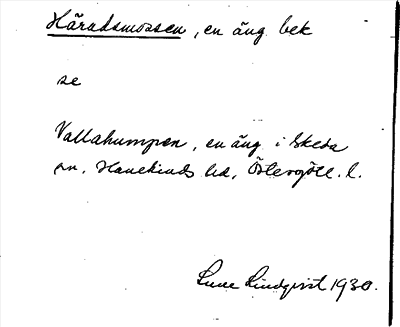 Häradsmossen, en äng bek
se
Vallahumpen, en äng i Skeda
sn, Hanekinds hd, Östergötl. l.
Sune Lindqvist 1930.